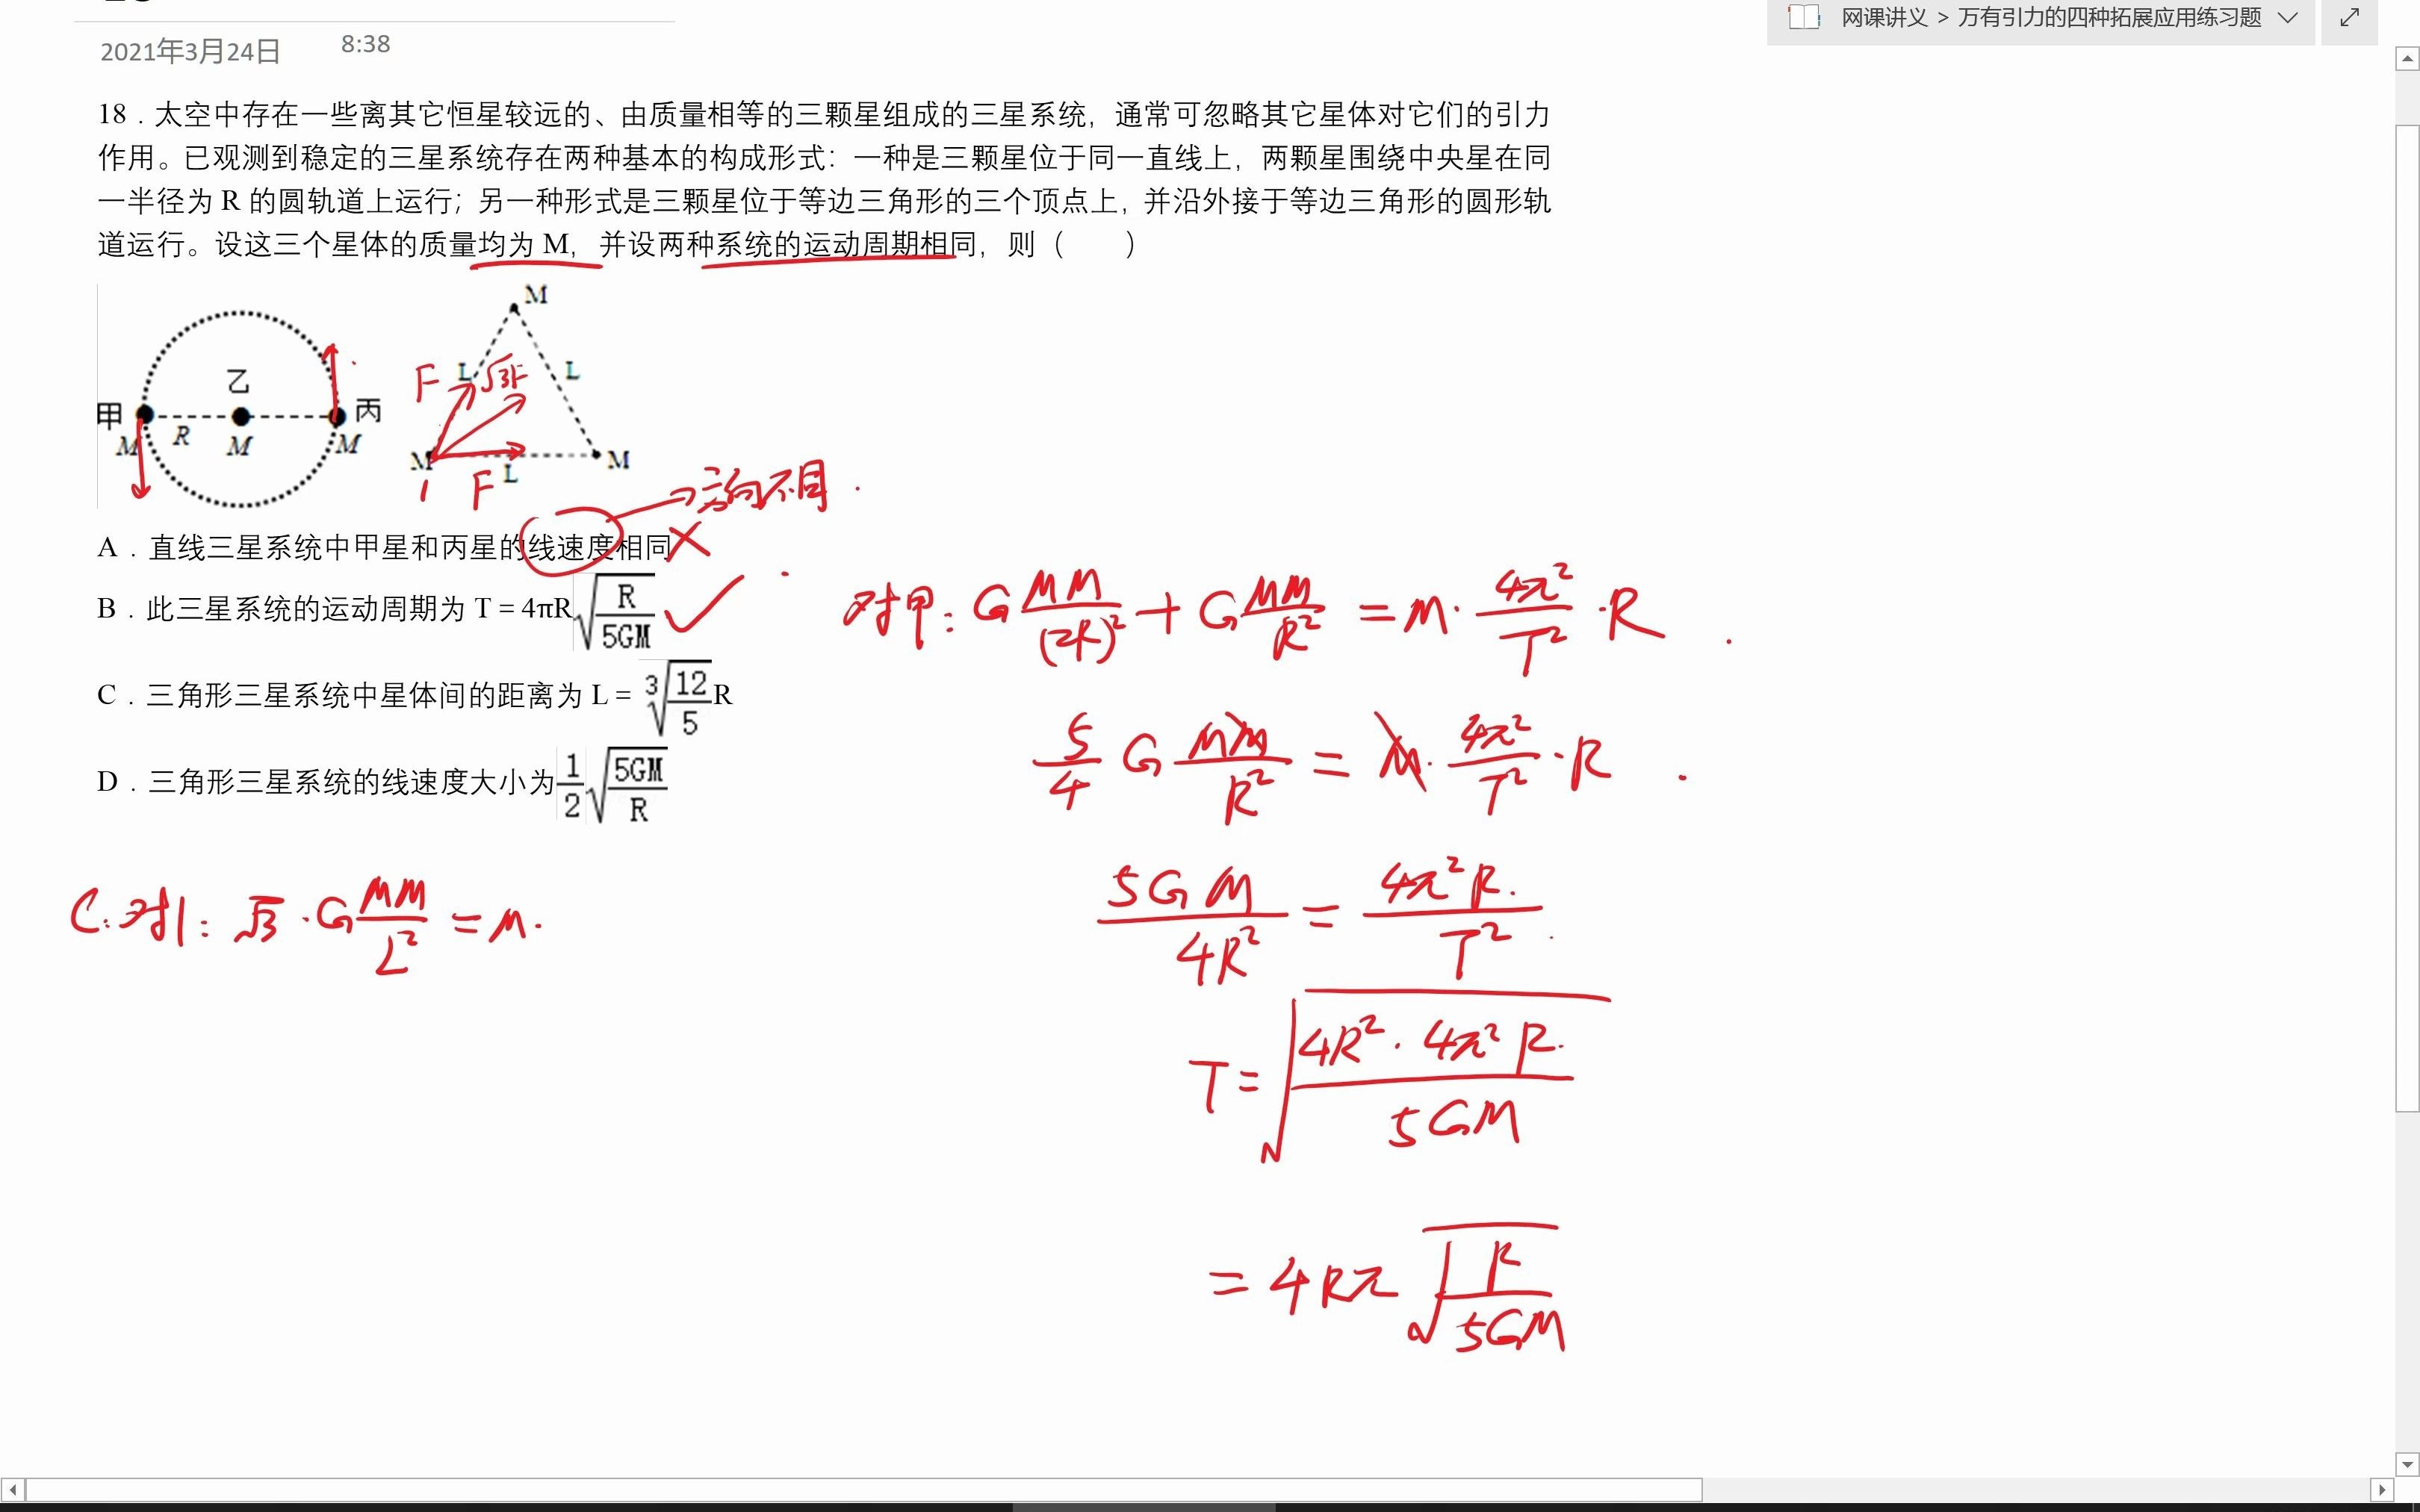 网课讲义 > 万有引力的四种拓展应用练习题
2021年3月24日 8:38
18．太空中存在一些离其它恒星较远的、由质量相等的三颗星组成的三星系统，通常可忽略其它星体对它们的引力
作用。已观测到稳定的三星系统存在两种基本的构成形式：一种是三颗星位于同一直线上，两颗星围绕中央星在同
一半径为 R 的圆轨道上运行；另一种形式是三颗星位于等边三角形的三个顶点上，并沿外接于等边三角形的圆形轨
道运行。设这三个星体的质量均为 M，并设两种系统的运动周期相同，则（　　）
甲 乙 丙
M R M M
M
F L √3F L
M M
1 F L
方向不同
A．直线三星系统中甲星和丙星的线速度相同 ×
B．此三星系统的运动周期为 T = 4πR√(R/5GM) ✓
C．三角形三星系统中星体间的距离为 L = ∛(12/5)R
D．三角形三星系统的线速度大小为 1/2 √(5GM/R)
对甲: G MM/(2R)² + G MM/R² = M · 4π²/T² · R
5/4 G MM/R² = M · 4π²/T² · R
5GM/4R² = 4π²R/T²
T = √(4R² · 4π²R/5GM)
= 4Rπ √(R/5GM)
C. 对1: √3 · G MM/L² = M ·